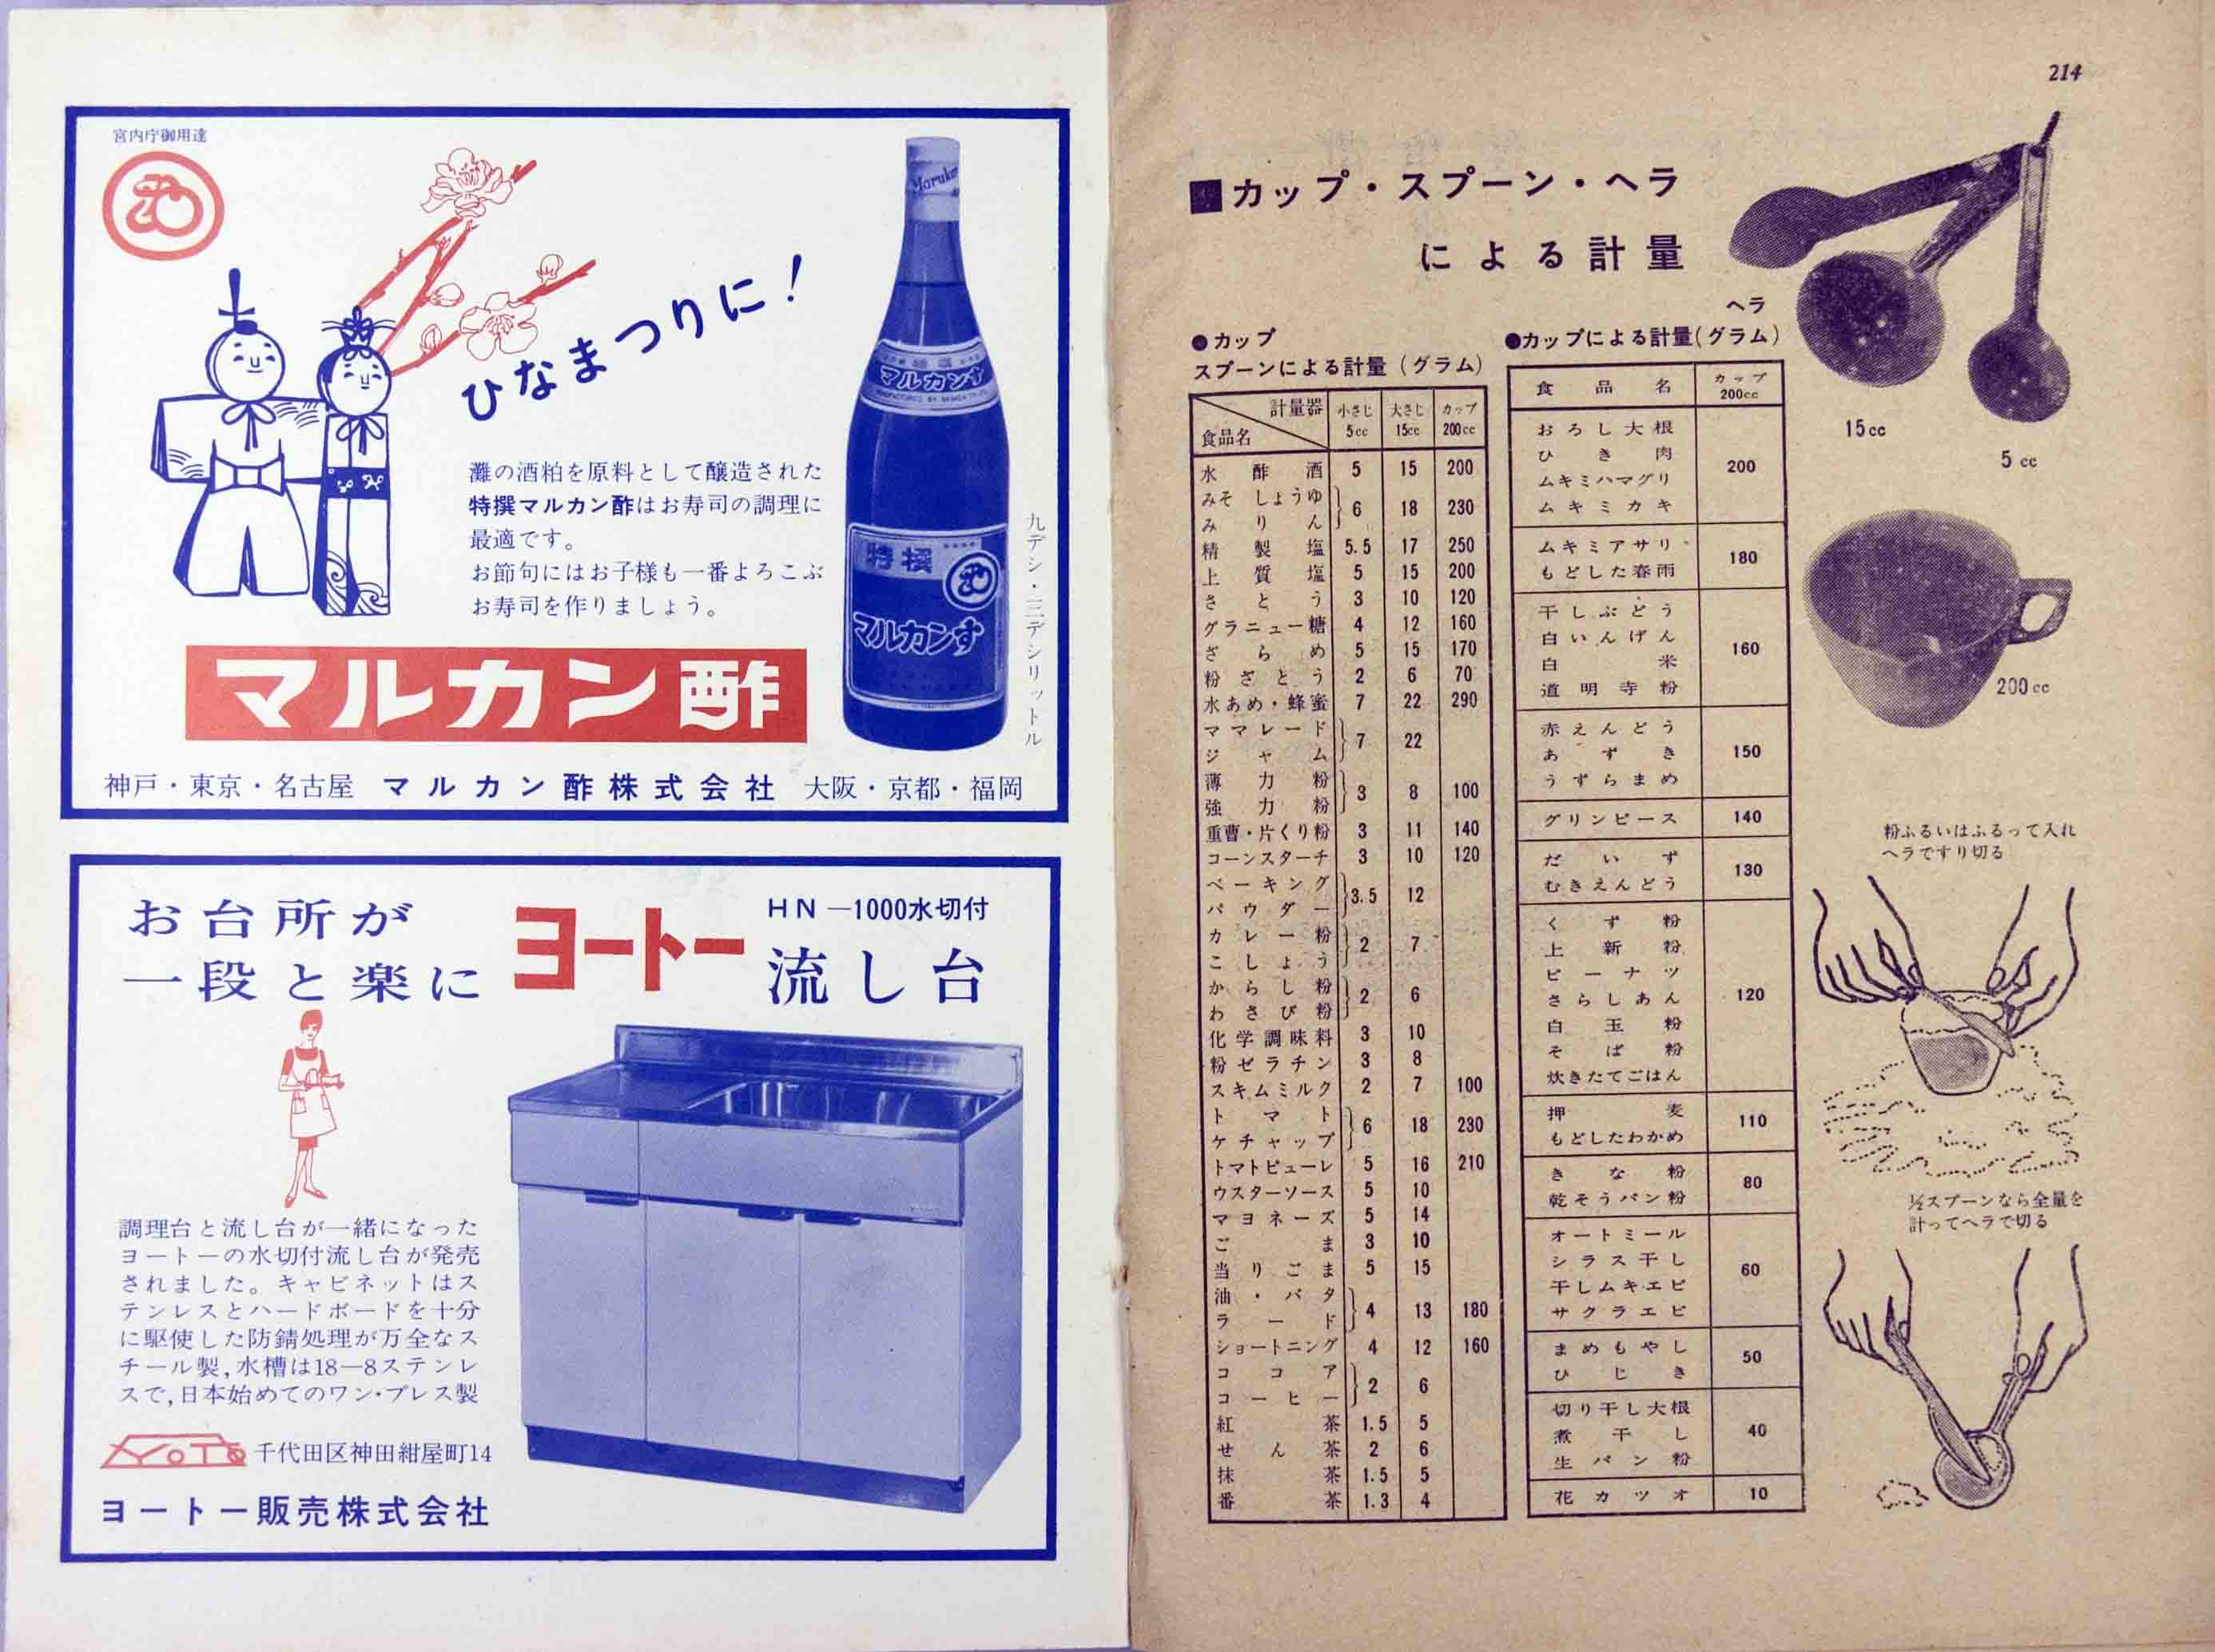 宮内庁御用達
ひなまつりに!
灘の酒粕を原料として醸造された
特撰マルカン酢はお寿司の調理に
最適です。
お節句にはお子様も一番よろこぶ
お寿司を作りましょう。
マルカン酢
マルカンす
特撰
マルカンす
九デシ・三デシリットル
神戸・東京・名古屋 マルカン酢株式会社 大阪・京都・福岡
お台所が
一段と楽に
ヨートー
HN―1000水切付
流し台
調理台と流し台が一緒になった
ヨートーの水切付流し台が発売
されました。キャビネットはス
テンレスとハードボードを十分
に駆使した防錆処理が万全なス
チール製,水槽は18―8ステンレ
スで,日本始めてのワン・プレス製
YOTO 千代田区神田紺屋町14
ヨートー販売株式会社
214
■カップ・スプーン・ヘラ
による計量
●カップ
スプーンによる計量(グラム)
計量器 小さじ 大さじ カップ
食品名 5cc 15cc 200cc
水 酢 酒 5 15 200
みそ しょうゆ
みりん 6 18 230
精製塩 5.5 17 250
上質塩 5 15 200
さとう 3 10 120
グラニュー糖 4 12 160
ざらめ 5 15 170
粉ざとう 2 6 70
水あめ・蜂蜜 7 22 290
ママレード
ジャム 7 22
薄力粉
強力粉 3 8 100
重曹・片くり粉 3 11 140
コーンスターチ 3 10 120
ベーキング
パウダー 3.5 12
カレー粉
こしょう 2 7
からし粉
わさび粉 2 6
化学調味料 3 10
粉ゼラチン 3 8
スキムミルク 2 7 100
トマト
ケチャップ 6 18 230
トマトピューレ 5 16 210
ウスターソース 5 10
マヨネーズ 5 14
ごま 3 10
当りごま 5 15
油・バタ
ラード 4 13 180
ショートニング 4 12 160
ココア
コーヒー 2 6
紅茶 1.5 5
せん茶 2 6
抹茶 1.5 5
番茶 1.3 4
ヘラ
●カップによる計量(グラム)
食品名 カップ
200cc
おろし大根
ひき肉
ムキミハマグリ
ムキミカキ
200
ムキミアサリ
もどした春雨
180
干しぶどう
白いんげん
白米
道明寺粉
160
赤えんどう
あずき
うずらまめ
150
グリンピース 140
だいず
むきえんどう
130
くず粉
上新粉
ピーナツ
さらしあん
白玉粉
そば粉
炊きたてごはん
120
押麦
もどしたわかめ
110
きな粉
乾そうパン粉
80
オートミール
シラス干し
干しムキエビ
サクラエビ
60
まめもやし
ひじき
50
切り干し大根
煮干し
生パン粉
40
花カツオ 10
15cc
5 cc
200cc
粉ふるいはふるって入れ
ヘラですり切る
½スプーンなら全量を
計ってヘラで切る